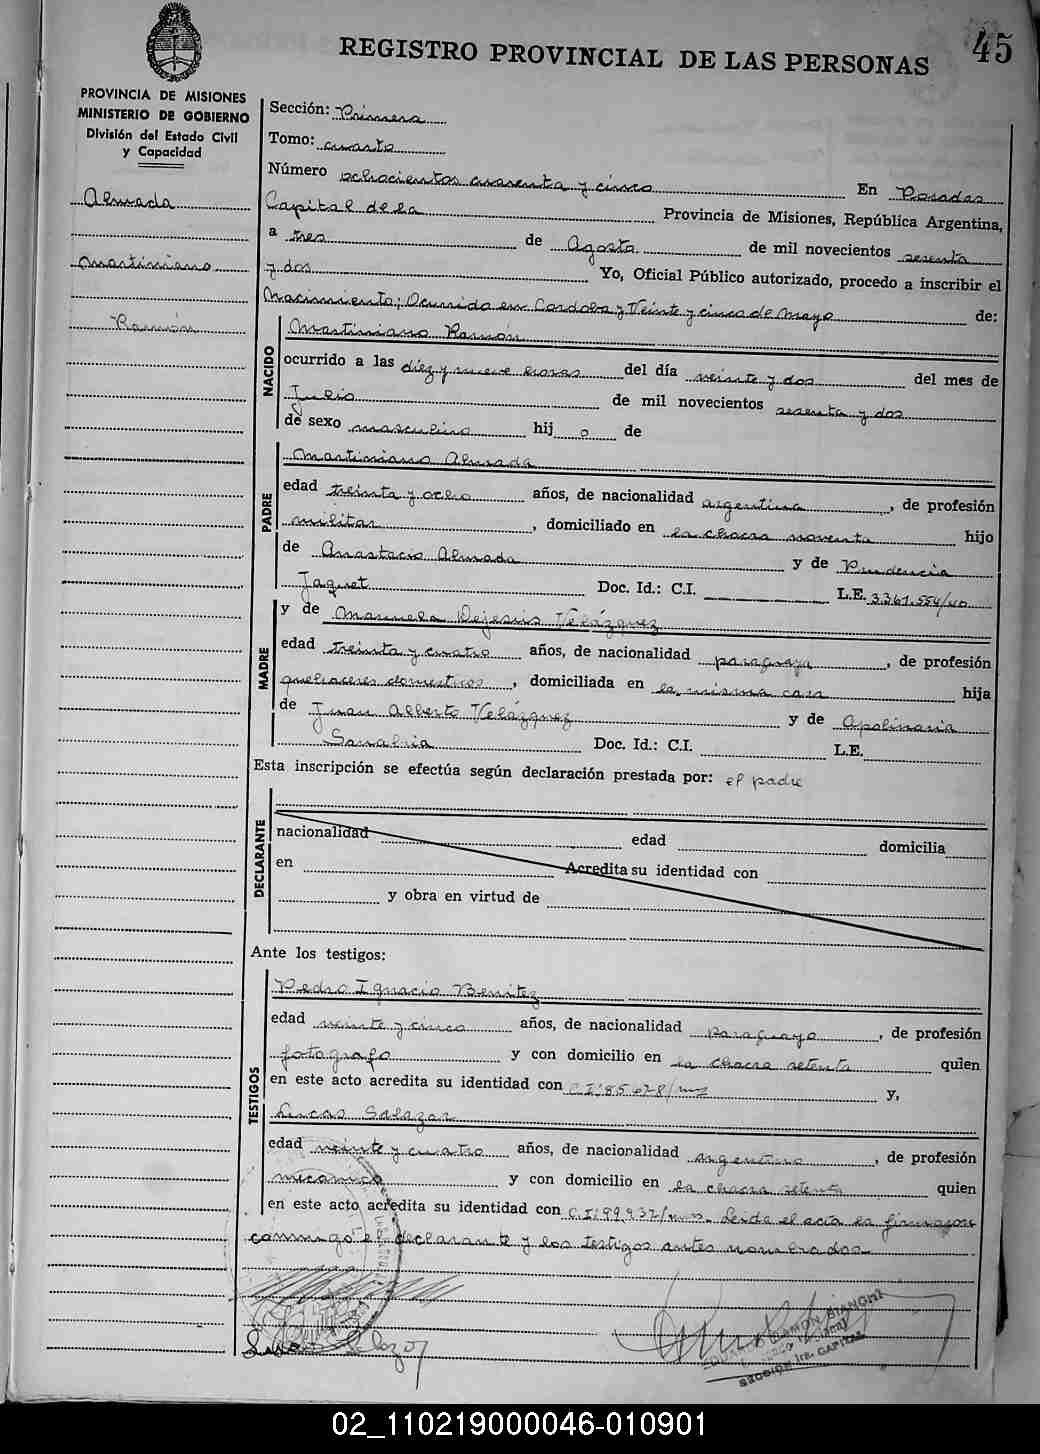 REGISTRO PROVINCIAL DE LAS PERSONAS
45
PROVINCIA DE MISIONES
MINISTERIO DE GOBIERNO
División del Estado Civil
y Capacidad
Almada
Martiniano
Ramón
Sección: Primera
Tomo: cuarto
Número ochocientos cuarenta y cinco En Posadas
Capital de la Provincia de Misiones, República Argentina,
a tres de Agosto de mil novecientos sesenta
y dos Yo, Oficial Público autorizado, procedo a inscribir el
Nacimiento; Ocurrido en Cordoba y Veinte y cinco de Mayo de:
NACIDO
Martiniano Ramón
ocurrido a las diez y nueve horas del día veinte y dos del mes de
Julio de mil novecientos sesenta y dos
de sexo masculino hijo de
PADRE
Martiniano Almada
edad treinta y ocho años, de nacionalidad argentina, de profesión
militar, domiciliado en la chacra noventa hijo
de Anastacio Almada y de Prudencia
Jaquet Doc. Id.: C.I. L.E. 3.361.554/
MADRE
y de Manuela Dejesús Velázquez
edad treinta y cuatro años, de nacionalidad paraguaya, de profesión
quehaceres domesticos, domiciliada en la misma casa hija
de Juan Alberto Velázquez y de Apolinaria
Sanabria Doc. Id.: C.I. L.E.
Esta inscripción se efectúa según declaración prestada por: el padre
DECLARANTE
nacionalidad edad domicilia
en Acredita su identidad con
y obra en virtud de
Ante los testigos:
TESTIGOS
Pedro Ignacio Benitez
edad veinte y cinco años, de nacionalidad paraguayo, de profesión
fotografo y con domicilio en la chacra setenta quien
en este acto acredita su identidad con C.I: 85.678/ms y,
Lucas Salazar
edad veinte y cuatro años, de nacionalidad argentino, de profesión
mecanico y con domicilio en la chacra setenta quien
en este acto acredita su identidad con C.I: 99.937/ms. Leida el acta la firman con
conmigo el declarante y los testigos antes nombrados
Lucas Salazar
EDUARDO RAMON BIANCHI
SECCION 1ra. CAPITAL
02_110219000046-010901